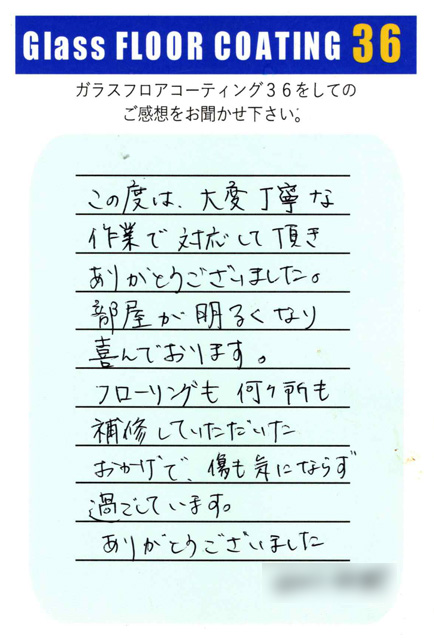 Glass FLOOR COATING 36
ガラスフロアコーティング36をしての
ご感想をお聞かせ下さい。
この度は、大変丁寧な
作業で対応して頂き
ありがとうございました。
部屋が明るくなり
喜んでおります。
フローリングも何ヶ所も
補修していただいた
おかげで、傷も気にならず
過ごしています。
ありがとうございました